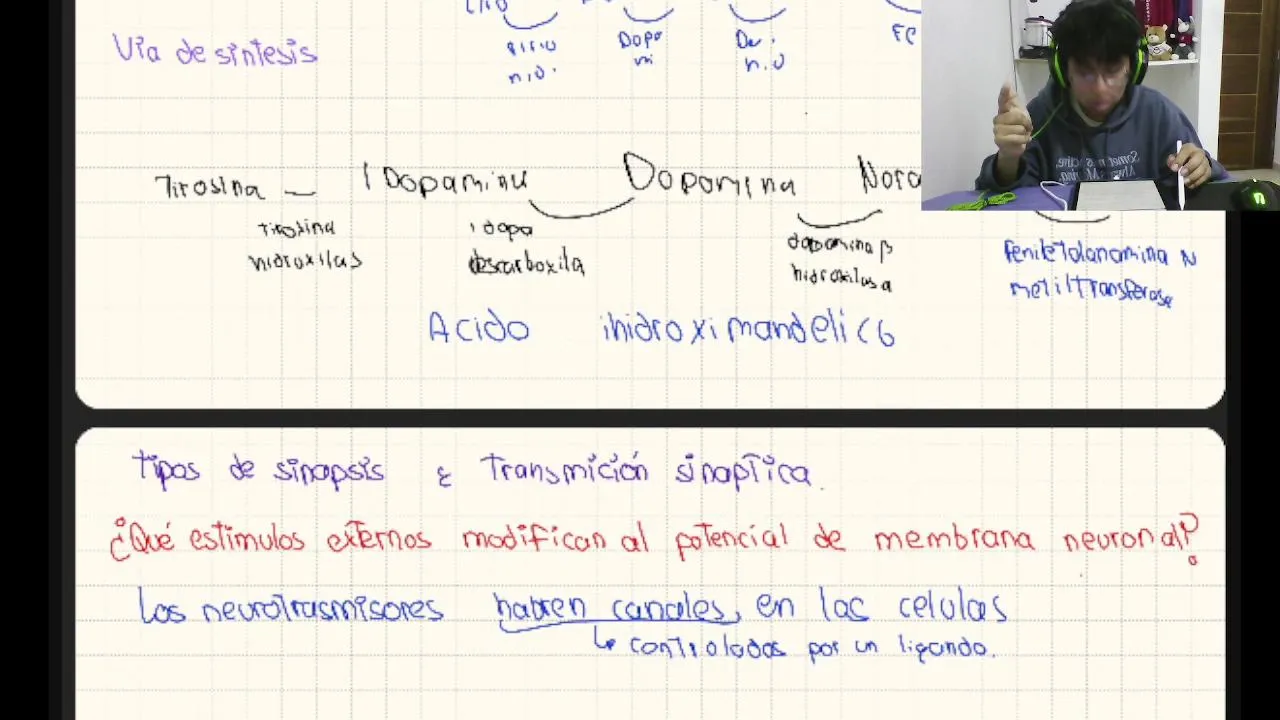 Vía de síntesis
Dopa
Tirosina – l Dopamina Dopamina Nora
Tirosina
hidroxilas
l dopa
descarboxila
dopamina β
hidroxilasa
feniletolanomina N
metiltransferase
Acido ihidroximandelico
tipos de sinapsis & Transmición sinaptica.
¿Qué estimulos externos modifican al potencial de membrana neuronal?
Los neurotrasmisores habren canales, en las celulas
↳ controlados por un ligando.